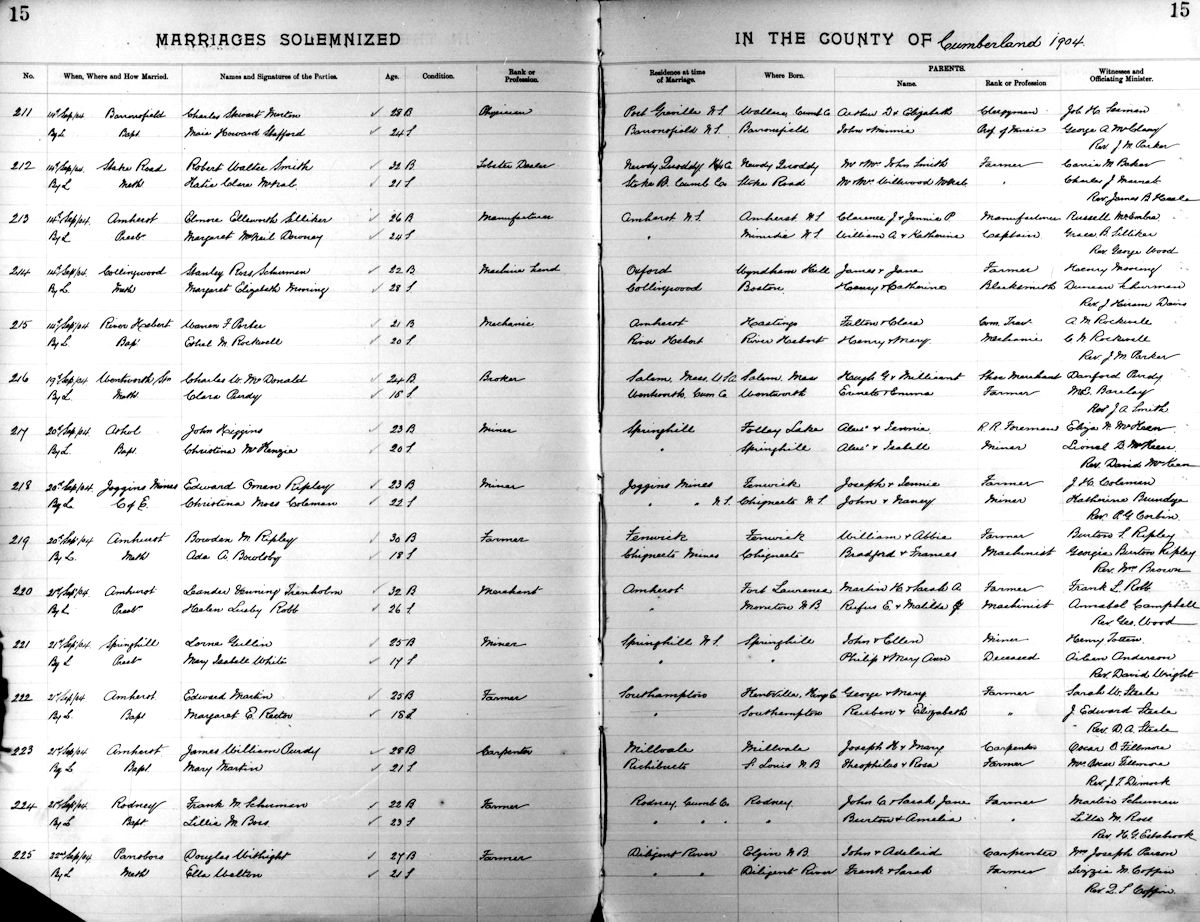 15 15
MARRIAGES SOLEMNIZED IN THE COUNTY OF Cumberland 1904.
No. When, Where and How Married. Names and Signatures of the Parties. Age. Condition. Rank or Profession. Residence at time of Marriage. Where Born. PARENTS. Name. Rank or Profession Witnesses and Officiating Minister.
211 14 Sep/04 Barronsfield Charles Stewart ✓ 28 B Physician Port Greville N.S. Wallace, Cumb Co Arthur D & Elizabeth Clergyman Job H. Seaman
By L Bapt Howard ✓ 24 S Barronsfield N.S. Barronsfield John & Minnie Prof of Music George A.
Rev J M Parker
212 14 Sep/04 Shake Road Robert Walter Smith ✓ 32 B Lobster Dealer Mr & Mrs John Smith Farmer Carrie M. Baker
By L Meth Katie Clare ✓ 21 S Cumb Co Road Mr & Mrs " Charles J
Rev James B
213 14 Sep/04 Amherst Elmore Ellsworth ✓ 26 B Manufacturer Amherst N.S. Amherst N.S. Clarence J & Jennie P Manufacturer Russell
By L Presb Margaret McNeil Downey ✓ 24 S " Minudie N.S. William A & Katherine Captain Grace B. Silliker
Rev George Wood
214 14 Sep/04 Collingwood Stanley Ross Schurman ✓ 22 B Machine Hand Oxford Wyndham Hill James & Jane Farmer Henry
By L Meth Margaret Elizabeth ✓ 28 S Collingwood Boston Blacksmith Duncan Schurman
Rev J Hiram Davis
215 14 Sep/04 River Hebert Warren F Porter ✓ 21 B Mechanic Amherst Hastings Fulton & Clara Com. Trav. A M Rockwell
By L Bap Ethel M. Rockwell ✓ 20 S River Hebert River Hebert Henry & Mary Mechanic C N Rockwell
Rev. J M Parker
216 19 Sep/04 Wentworth Stn Charles W. McDonald ✓ 24 B Broker Salem, Mass, U.S.A Salem Mass Hugh G. & Millicent Shoe Merchant Danford Purdy
By L Meth Clara Purdy ✓ S Wentworth, Cum Co Wentworth & Emma Farmer M.E. Barclay
Rev J A Smith
217 20 Sep/04 Athol John Higgins ✓ 23 B Miner Springhill Folley Lake Alex & Jennie R R Foreman Eliza N McKeen
By L Bap. Christina McKenzie ✓ 20 S " Springhill Alex & Isabell Miner Lionel D McKeen
Rev. David McKeen
218 20 Sep/04 Joggins Mines Edward Owen Ripley ✓ 23 B Miner Joggins Mines Fenwick Joseph & Jennie Farmer J H Coleman
By L C of E. Christina Moss Coleman ✓ 22 S " " N.S. Chignecto N.S. John & Nancy Miner Katherine Brundge
Rev. Corbin
219 20 Sep/04 Amherst Bowden M. Ripley ✓ 30 B Farmer Fenwick Fenwick William & Abbie Farmer Burton L Ripley
By L. Meth Ada A. ✓ 18 S Chignecto Mines Chignecto Bradford & Frances Machinist Georgia Burton Ripley
Rev. Wm Brown
220 21 Sep/04 Amherst Leander Trenholm ✓ 32 B Merchant Amherst Fort Lawrence Martin H. & Sarah A Farmer Frank L. Robb
By L Presb Helen Lusby Robb ✓ 26 S " Moncton N.B Rufus E. & Matilda Machinist Annabel Campbell
Rev. Geo. Wood
221 21 Sep/04 Springhill Lorne Gillin ✓ 25 B Miner Springhill N.S. Springhill John & Ellen Miner Henry
By L Presb Mary Isabele White ✓ 17 S " " Philip & Mary Ann Deceased Aileen Anderson
Rev. David Wright
222 21 Sep/04 Amherst Edward Martin ✓ 25 B Farmer Southampton Kentville, Kings Co George & Mary Farmer Sarah W. Steele
By L Bapt Margaret E. Rector ✓ 18 S " Southampton Reuben & Elizabeth " J Edward Steele
Rev. D. A. Steele
223 21 Sep/04 Amherst James William Purdy ✓ 28 B Carpenter Millvale Millvale Joseph H & Mary Carpenter Oscar B Fillmore
By L Bapt Mary Martin ✓ 21 S Richibucto St Louis N.B Theophilus & Rosa Farmer Mrs Oscar Fillmore
Rev J. T. Dimock
224 21 Sep/04 Rodney Frank M. Schurman ✓ 22 B Farmer Rodney, Cumb Co. Rodney John C & Sarah Jane Farmer Martin Schurman
By L Bapt Lillie M. Ross ✓ 23 S " " " " Burton & Amelia " Lille M. Ross
Rev. H. G. Estabrook
225 22 Sep/04 Parrsboro Douglas ✓ 27 B Farmer Diligent River Elgin N.B. John & Adelaid Carpenter Wm Joseph
By L Meth Ella Walton ✓ 21 S " " Diligent River Frank & Sarah Farmer Lizzie M. Coffin
Rev. Coffin